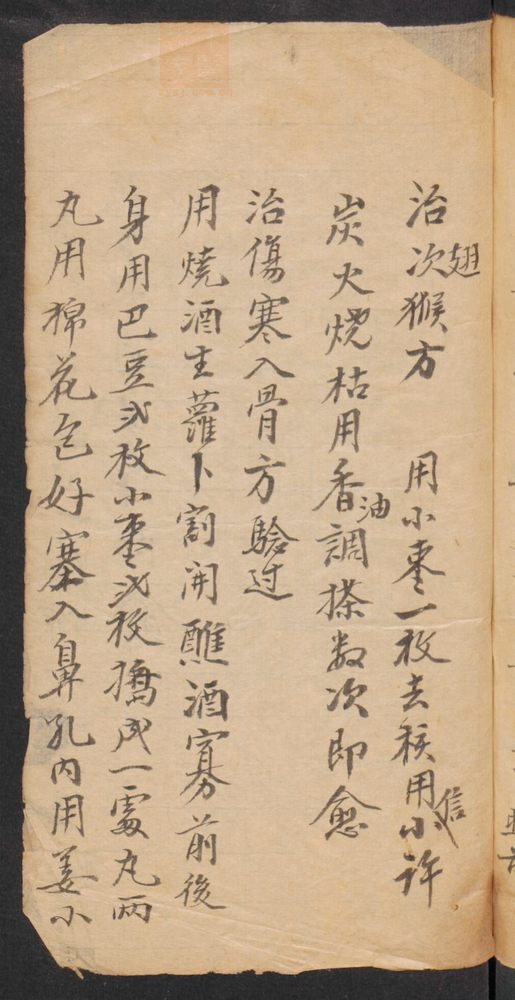 治次翅猴方　用小枣一枚去核用信小许
炭火烧枯用香油調搽数次即愈
治傷寒入骨方驗过
用燒酒生蘿卜割开醮酒寡前後
身用巴豆弍枚小枣弍枚搗成一處丸两
丸用綿花包好塞入鼻孔内用姜小